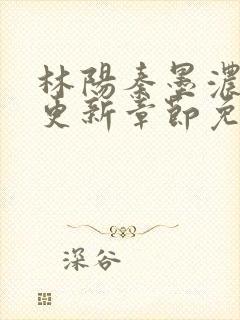 林陽秦墨濃
更新章節免
深谷